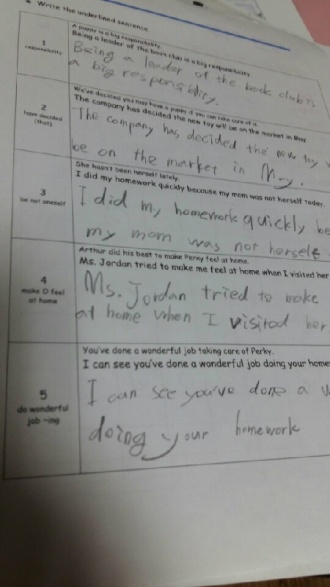 Write the underlined sentence.
A puppy is a big responsibility.
Being a leader of the book club is a big responsibility.
1
responsibility
Being a leader of the book club is
a big responsibility.
We've decided you may have a puppy if you can take care of it.
The company has decided the new toy will be on the market in May.
2
have decided
(that)
The company has decided the new toy
be on the market in May.
She hasn't been herself lately.
I did my homework quickly because my mom was not herself today.
3
be not oneself
I did my homework quickly be
my mom was not herself
Arthur did his best to make Perky feel at home.
Ms. Jordan tried to make me feel at home when I visited her
4
make O feel
at home
Ms. Jordan tried to make
at home when I visited her
You've done a wonderful job taking care of Perky.
I can see you've done a wonderful job doing your home
5
do wonderful
job ~ing
I can see you've done a w
doing your homework